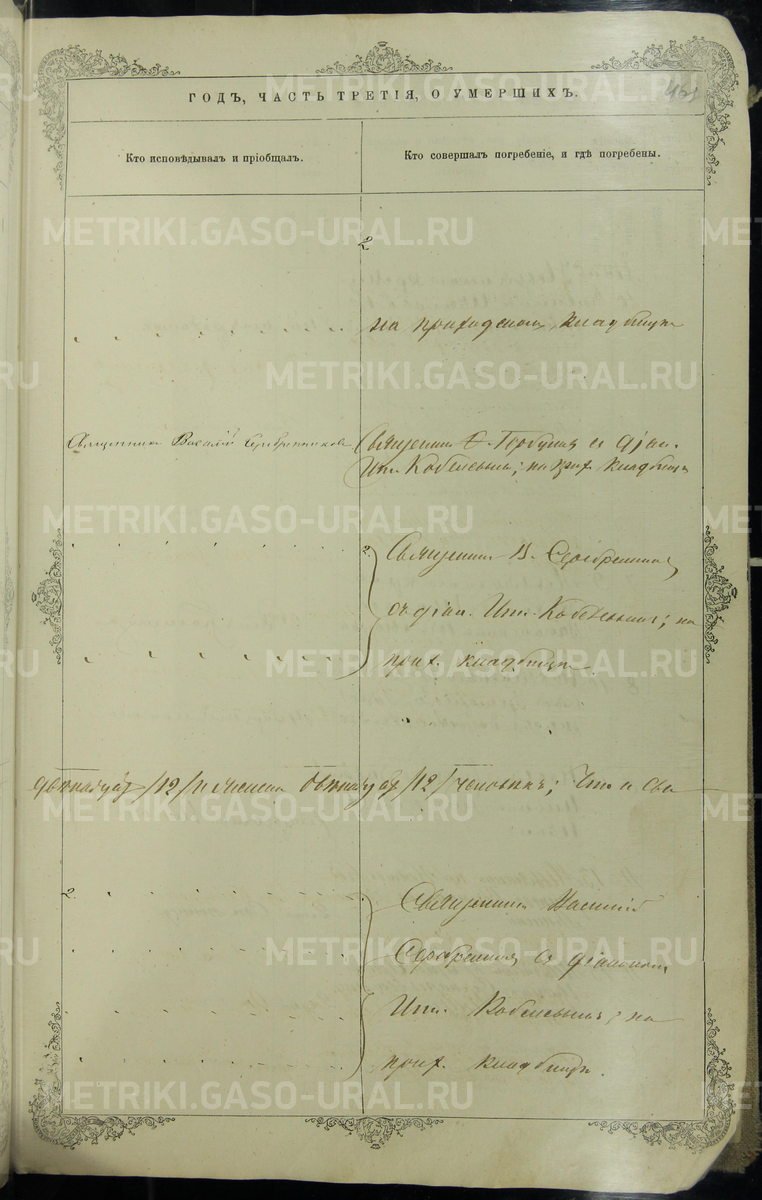 ГОДЪ, ЧАСТЬ ТРЕТІЯ, О УМЕРШИХЪ.
461
Кто исповѣдывалъ и пріобщалъ.
Кто совершалъ погребеніе, и гдѣ погребены.
METRIKI.GASO-URAL.RU
2
на приходскомъ кладбищѣ
Священникъ Василій Серебренниковъ
Священникъ Е. Горбуновъ съ діак.
Ип. Кобелевымъ; на прих. кладбищѣ
2. Священникъ В. Серебренниковъ
съ діак. Ип. Кобелевымъ; на
прих. кладбищѣ.
/12/ /12/ человѣкъ; Что и сви
2.
Священникъ Василій
Серебренниковъ съ діакономъ
Ип. Кобелевымъ; на
прих. кладбищѣ.